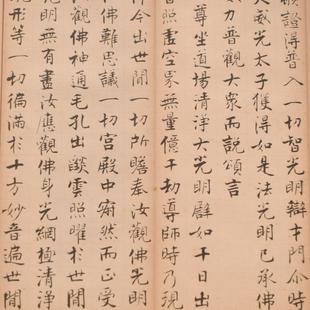 頓證得普入一切智光明辯才門尒時
大威光太子獲得如是法光明已承佛
力普觀大衆而說頌言
尊坐道場清淨大光明譬如千日出
普照虛空界無量億千劫導師時乃現
今出世間一切所瞻奉汝觀佛光明
佛難思議一切宮殿中寂然而正受
觀佛神通毛孔出燄雲照曜於世間
光明無有盡汝應觀佛身光網極清淨
現形等一切徧滿於十方妙音遍世間